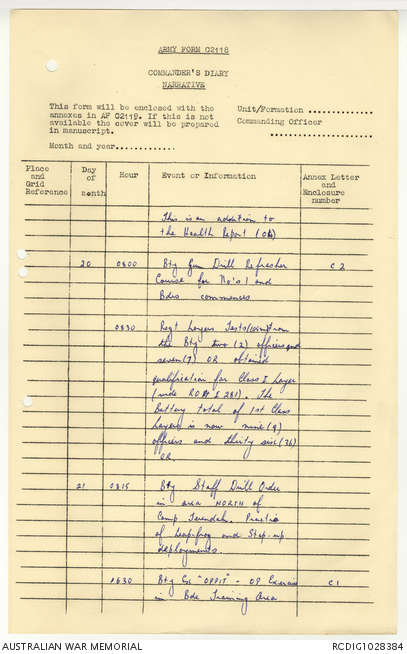 ARMY FORM C2118
COMMANDER'S DIARY
NARRATIVE
This form will be enclosed with the
annexes in AF C2119. If this is not
available the cover will be prepared
in manuscript.
Unit/Formation ..............
Commanding Officer
......................
Month and year.............
Place and Grid Reference
Day of month
Hour
Event or Information
Annex Letter and Enclosure number
This is an addition to
the Health Report (Oct)
20 0800 Bty Gun Drill Refresher C 2
Course for No's 1 and
Bdrs commences.
0830 Regt Layers Tests from
the Bty two (2) officers and
seven (7) OR obtained
qualification for Class I layer
(vide RO I 281). The
Battery total of 1st Class
layers is now nine (9)
officers and thirty six (36)
OR.
21 0815 Bty Staff Drill Order
in area NORTH of
Camp . Practice
of leapfrog and Step-up
deployments.
1630 Bty Ex "OPPIT" - OP Exercise C 1
in Bde Training Area
AUSTRALIAN WAR MEMORIAL
RCDIG1028384